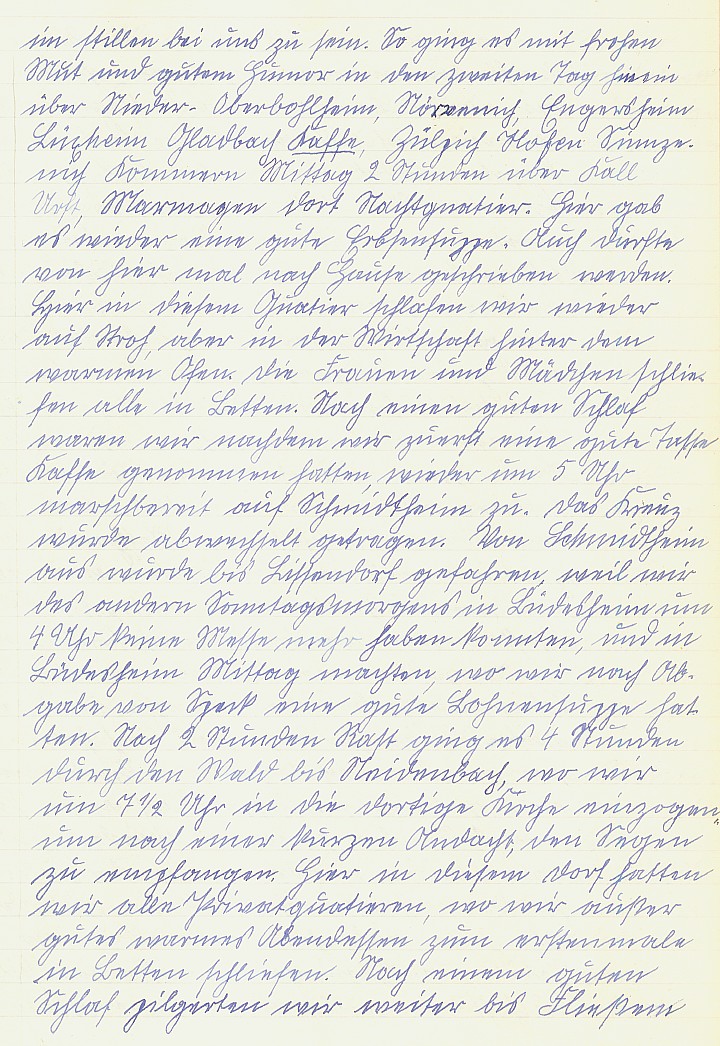 im stillen bei uns zu sein. So ging es mit frohen
Mut und gutem Humor in den zweiten Tag hinein
über Nieder- Oberbohlheim, Nörvenich, Engersheim
Lüxheim Gladbach Kaffe, Zülpich Hofen Sinze-
nich Kommern Mittag 2 Stunden über Kall
Urft, Marmagen dort Nachtquatier. Hier gab
es wieder eine gute Erbsensuppe. Auch durfte
von hier mal nach Hause geschrieben werden.
Hier in diesem Quatier schlafen wir wieder
auf Stroh, aber in der Wirtschaft hinter dem
warmen Ofen. Die Frauen und Mädchen schlie-
fen alle in Betten. Nach einen guten Schlaf
waren wir nachdem wir zuerst eine gute Tasse
Kaffe genommen hatten, wieder um 5 Uhr
marschbereit auf Schmidtheim zu. Das Kreuz
wurde abwechselt getragen. Von Schmidtheim
aus wurde bis Lissendorf gefahren, weil wir
des andern Sonntagsmorgens in Büdesheim um
4 Uhr keine Messe mehr haben konnten, und in
Büdesheim Mittag machten, wo wir nach Ab-
gabe von Speck eine gute Bohnensuppe hat-
ten. Nach 2 Stunden Rast ging es 4 Stunden
durch den Wald bis Neidenbach, wo wir
um 7 1/2 Uhr in die dortige Kirche einzogen,
um nach einer kurzen Andacht, den Segen
zu empfangen. Hier in diesem Dorf hatten
wir alle Privatquatieren, wo wir außer
gutes warmes Abendessen zum erstenmale
in Betten schliefen. Nach einem guten
Schlaf pilgerten wir weiter bis Fließem